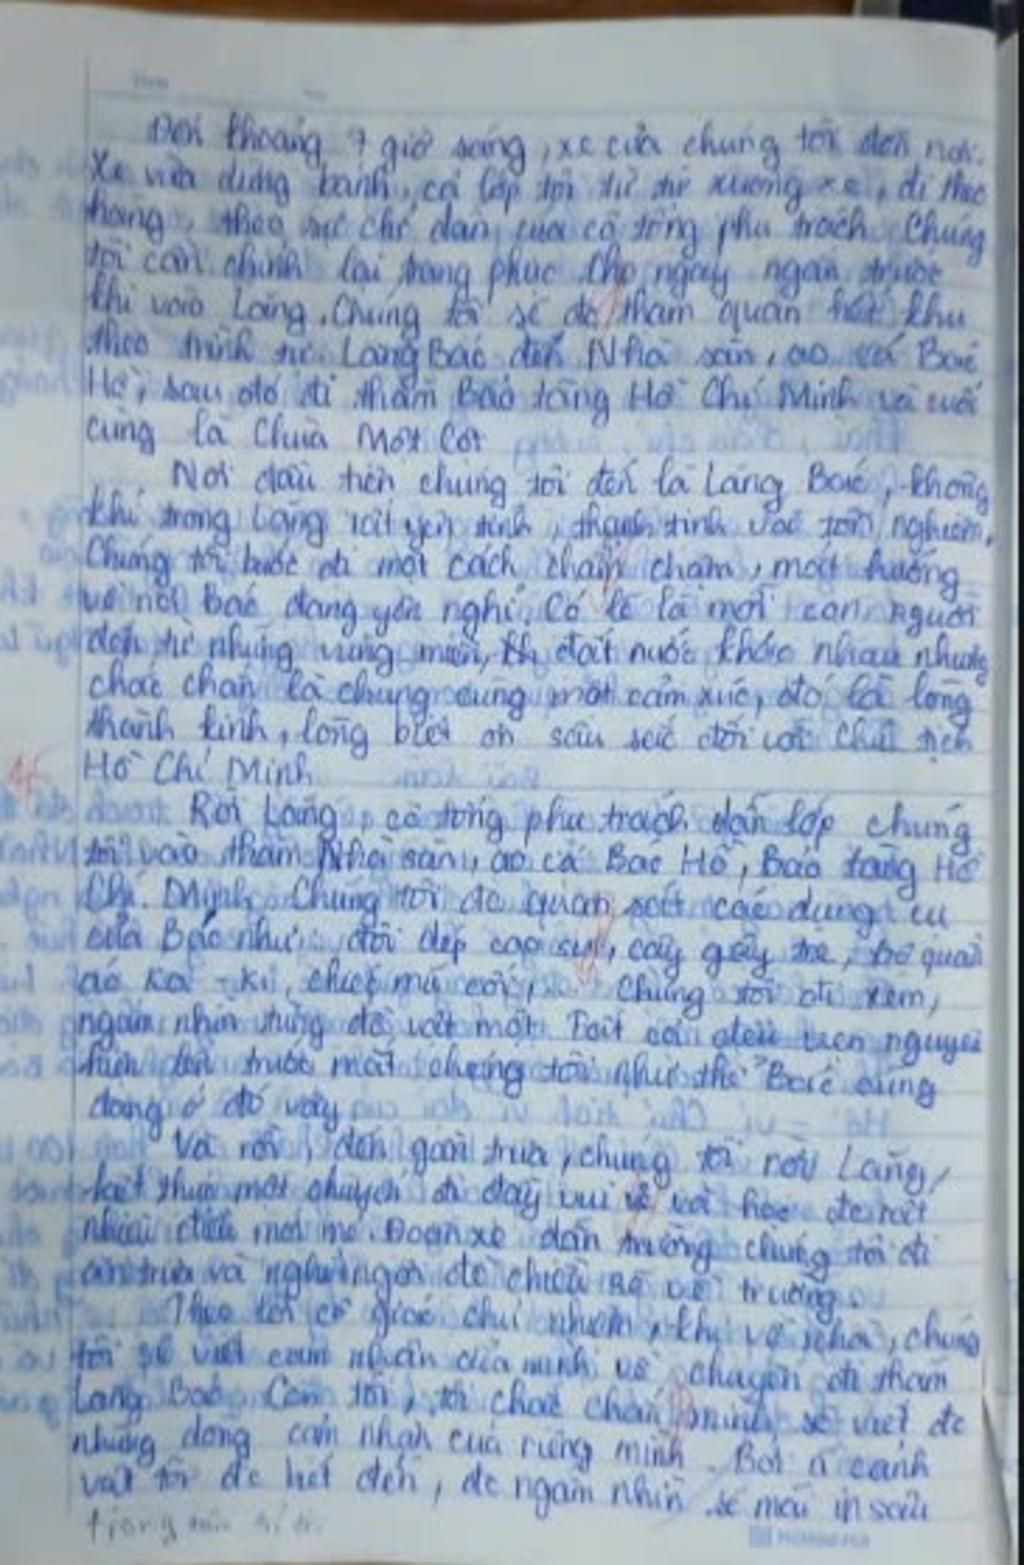 Đến khoảng 7 giờ sáng, xe của chúng tôi đến nơi.
Xe vừa dừng bánh, cả lớp tôi từ từ xuống xe, đi theo
hàng, theo sự chỉ dẫn của cô tổng phụ trách. Chúng
tôi cần chỉnh lại trang phục cho ngay ngắn trước
khi vào Lăng. Chúng tôi sẽ đc tham quan hết khu
theo trình tự Lăng Bác đến Nhà sàn, ao cá Bác
Hồ, sau đó đi thăm Bảo tàng Hồ Chí Minh và cuối
cùng là Chùa Một Cột
Nơi đầu tiên chúng tôi đến là Lăng Bác, không
khí trong Lăng rất yên tĩnh, thanh tịnh và tôn nghiêm.
Chúng tôi bước đi một cách chầm chậm, mắt hướng
về nơi Bác đang yên nghỉ. Có lẽ là mỗi con người
đến từ những vùng miền, đất nước khác nhau nhưng
chắc chắn là chung cùng một cảm xúc, đó là lòng
thành kính, lòng biết ơn sâu sắc đối với Chủ tịch
Hồ Chí Minh
Rời Lăng, cô tổng phụ trách dẫn lớp chúng
tôi vào thăm Nhà sàn, ao cá Bác Hồ, Bảo tàng Hồ
Chí Minh. Chúng tôi đc quan sát các dụng cụ
của Bác như: đôi dép cao su, cây gậy tre, bộ quần
áo ka-ki, chiếc mũ cối, ... Chúng tôi đi xem,
ngắm nhìn từng đồ vật một. Tất cả đều vẹn nguyên
hiện lên trước mắt chúng tôi như thể Bác cũng
đang ở đó vậy
Và rồi, đến gần trưa, chúng tôi rời Lăng,
kết thúc một chuyến đi đầy vui vẻ và học đc rất
nhiều điều mới mẻ. Đoàn xe dẫn trường chúng tôi đi
ăn trưa và nghỉ ngơi để chiều về trường.
Theo lời cô giáo chủ nhiệm, khi về nhà, chúng
tôi sẽ viết cảm nhận của mình về chuyến đi thăm
Lăng Bác. Còn tôi, tôi chắc chắn mình sẽ viết đc
những dòng cảm nhận của riêng mình. Bởi cảnh
vật tôi đc đến, đc ngắm nhìn sẽ mãi in sâu
trong